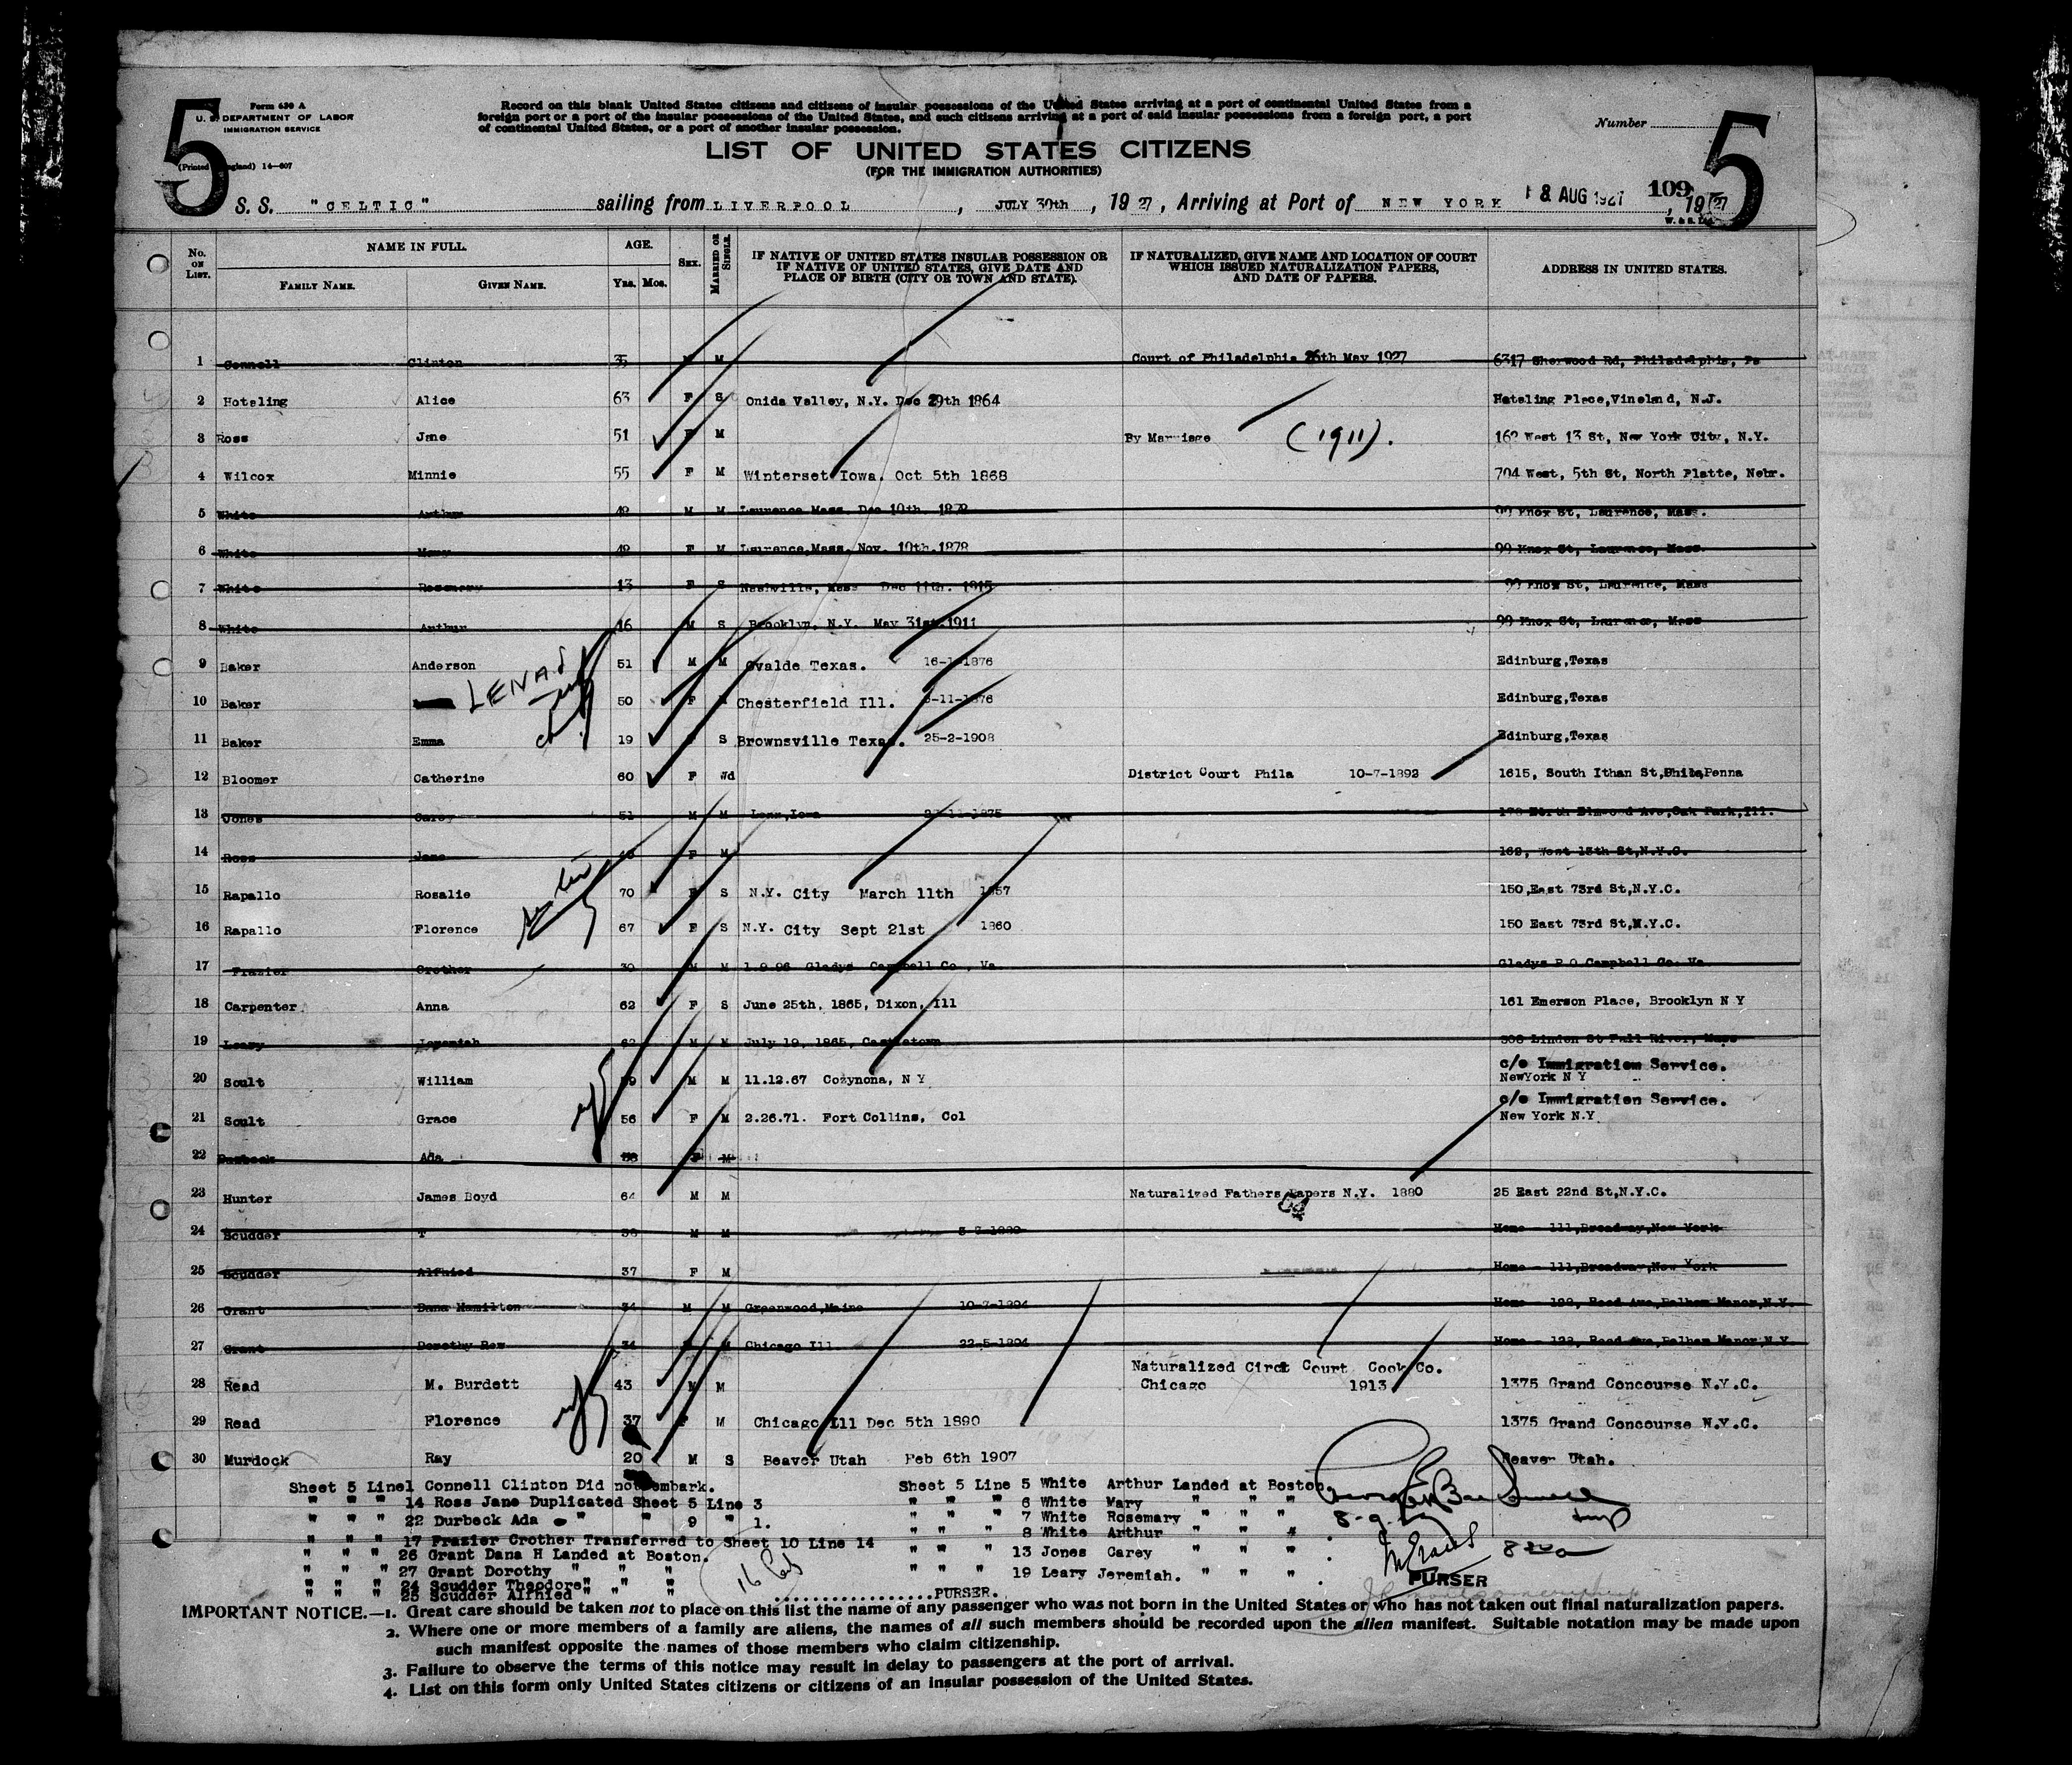 5
Form 630 A
U. S. DEPARTMENT OF LABOR
IMMIGRATION SERVICE
(Printed England) 14—607
Record on this blank United States citizens and citizens of insular possessions of the United States arriving at a port of continental United States from a
foreign port or a port of the insular possessions of the United States, and such citizens arriving at a port of said insular possessions from a foreign port, a port
of continental United States, or a port of another insular possession.
Number
5
LIST OF UNITED STATES CITIZENS
(FOR THE IMMIGRATION AUTHORITIES)
S. S. "CELTIC" sailing from LIVERPOOL, JULY 30th, 1927, Arriving at Port of NEW YORK 8 AUG 1927 109, 1927
No. ON LIST. NAME IN FULL. AGE. SEX. MARRIED OR SINGLE. IF NATIVE OF UNITED STATES INSULAR POSSESSION OR IF NATIVE OF UNITED STATES, GIVE DATE AND PLACE OF BIRTH (CITY OR TOWN AND STATE). IF NATURALIZED, GIVE NAME AND LOCATION OF COURT WHICH ISSUED NATURALIZATION PAPERS, AND DATE OF PAPERS. ADDRESS IN UNITED STATES.
FAMILY NAME. GIVEN NAME. YRS. MOS.
1 Connell Clinton 35 M Court of Philadelphia 26th May 1927 6317 Sherwood Rd, Philadelphia, Pa
2 Hoteling Alice 63 F S Onida Valley, N.Y. Dec 29th 1864 Hateling Place,Vineland, N.J.
3 Ross Jane 51 F M By Marriage (1911). 162 West 13 St, New York City, N.Y.
4 Wilcox Minnie 55 F M Winterset Iowa. Oct 5th 1868 704 West, 5th St, North Platte, Nebr.
5 White Arthur 48 M M Laurence Mass. Dec 10th. 1878 99 Knox St, Laurence, Mass.
6 White Mary 48 F M Laurence,Mass. Nov. 10th.1878 99 Knox St, Laurence, Mass.
7 White Rosemary 13 F S Nashville, Mass Dec 11th. 1915 99 Knox St, Laurence, Mass
8 White Arthur 16 M S Brooklyn, N.Y. May 31st.1911 99 Knox St, Laurence, Mass
9 Baker Anderson 51 M M Ovalde Texas. 16-1-1876 Edinburg,Texas
10 Baker LENA 50 F Chesterfield Ill. -11-1876 Edinburg,Texas
11 Baker Emma 19 S Brownsville Texas. 25-2-1908 Edinburg,Texas
12 Bloomer Catherine 60 F Wd District Court Phila 10-7-1892 1615, South Ithan St,Phila,Penna
13 Jones Carey 51 M M Iowa 1875 178 North Elmwood Ave,Oak Park,Ill.
14 Ross Jane F M 162, West 13th St,N.Y.C.
15 Rapallo Rosalie 70 F S N.Y. City March 11th 1857 150,East 73rd St,N.Y.C.
16 Rapallo Florence 67 F S N.Y. City Sept 21st 1860 150 East 73rd St,N.Y.C.
17 Frazier Crother 30 M M 1.9.96 Gladys Campbell Co., Va. Gladys P.O Campbell Co. Va
18 Carpenter Anna 62 F S June 25th, 1865, Dixon, Ill 161 Emerson Place, Brooklyn N Y
19 Leary Jeremiah 62 M M July 19, 1865, Castletown Linden St Fall River, Mass
20 Soult William 59 M M 11.12.67 Cozynona, N Y c/o Immigration Service.
NewYork N Y
21 Soult Grace 56 F M 2.26.71. Fort Collins, Col c/o Immigration Service.
New York N.Y
22 Durbeck Ada F M
23 Hunter James Boyd 64 M M Naturalized Fathers Papers N.Y. 1880 25 East 22nd St,N.Y.C.
24 Scudder T 38 M M Home - 111,Broadway,New York
25 Scudder Alfhied 37 F M Home - 111,Broadway,New York
26 Grant Dana Hamilton 34 M M Greenwood,Maine 10-7-1894 Home - 128, Reed Ave,Pelham Manor,N.Y.
27 Grant Dorothy Rew 34 M Chicago Ill 22-5-1894 Home - 128, Reed Ave,Pelham Manor,N.Y.
28 Read M. Burdett 43 M M Naturalized Circt Court Cook Co.
Chicago 1913 1375 Grand Concourse N.Y.C.
29 Read Florence 37 F M Chicago Ill Dec 5th 1890 1375 Grand Concourse N.Y.C.
30 Murdock Ray 20 M S Beaver Utah Feb 6th 1907 Beaver Utah.
Sheet 5 Line1 Connell Clinton Did not embark.
" " " 14 Ross Jane Duplicated Sheet 5 Line 3
" " " 22 Durbeck Ada " " 9 " 1.
" " " 17 Frazier Crother Transferred to Sheet 10 Line 14
" " " 26 Grant Dana H Landed at Boston.
" " " 27 Grant Dorothy " " "
" " " 24 Scudder Theodore " " "
" " " 25 Scudder Alfhied " " "
Sheet 5 Line 5 White Arthur Landed at Boston.
" " " 6 White Mary " " "
" " " 7 White Rosemary " " "
" " " 8 White Arthur " " "
" " " 13 Jones Carey " " "
" " " 19 Leary Jeremiah. " " "
PURSER.
PURSER
IMPORTANT NOTICE.—1. Great care should be taken not to place on this list the name of any passenger who was not born in the United States or who has not taken out final naturalization papers.
2. Where one or more members of a family are aliens, the names of all such members should be recorded upon the alien manifest. Suitable notation may be made upon
such manifest opposite the names of those members who claim citizenship.
3. Failure to observe the terms of this notice may result in delay to passengers at the port of arrival.
4. List on this form only United States citizens or citizens of an insular possession of the United States.